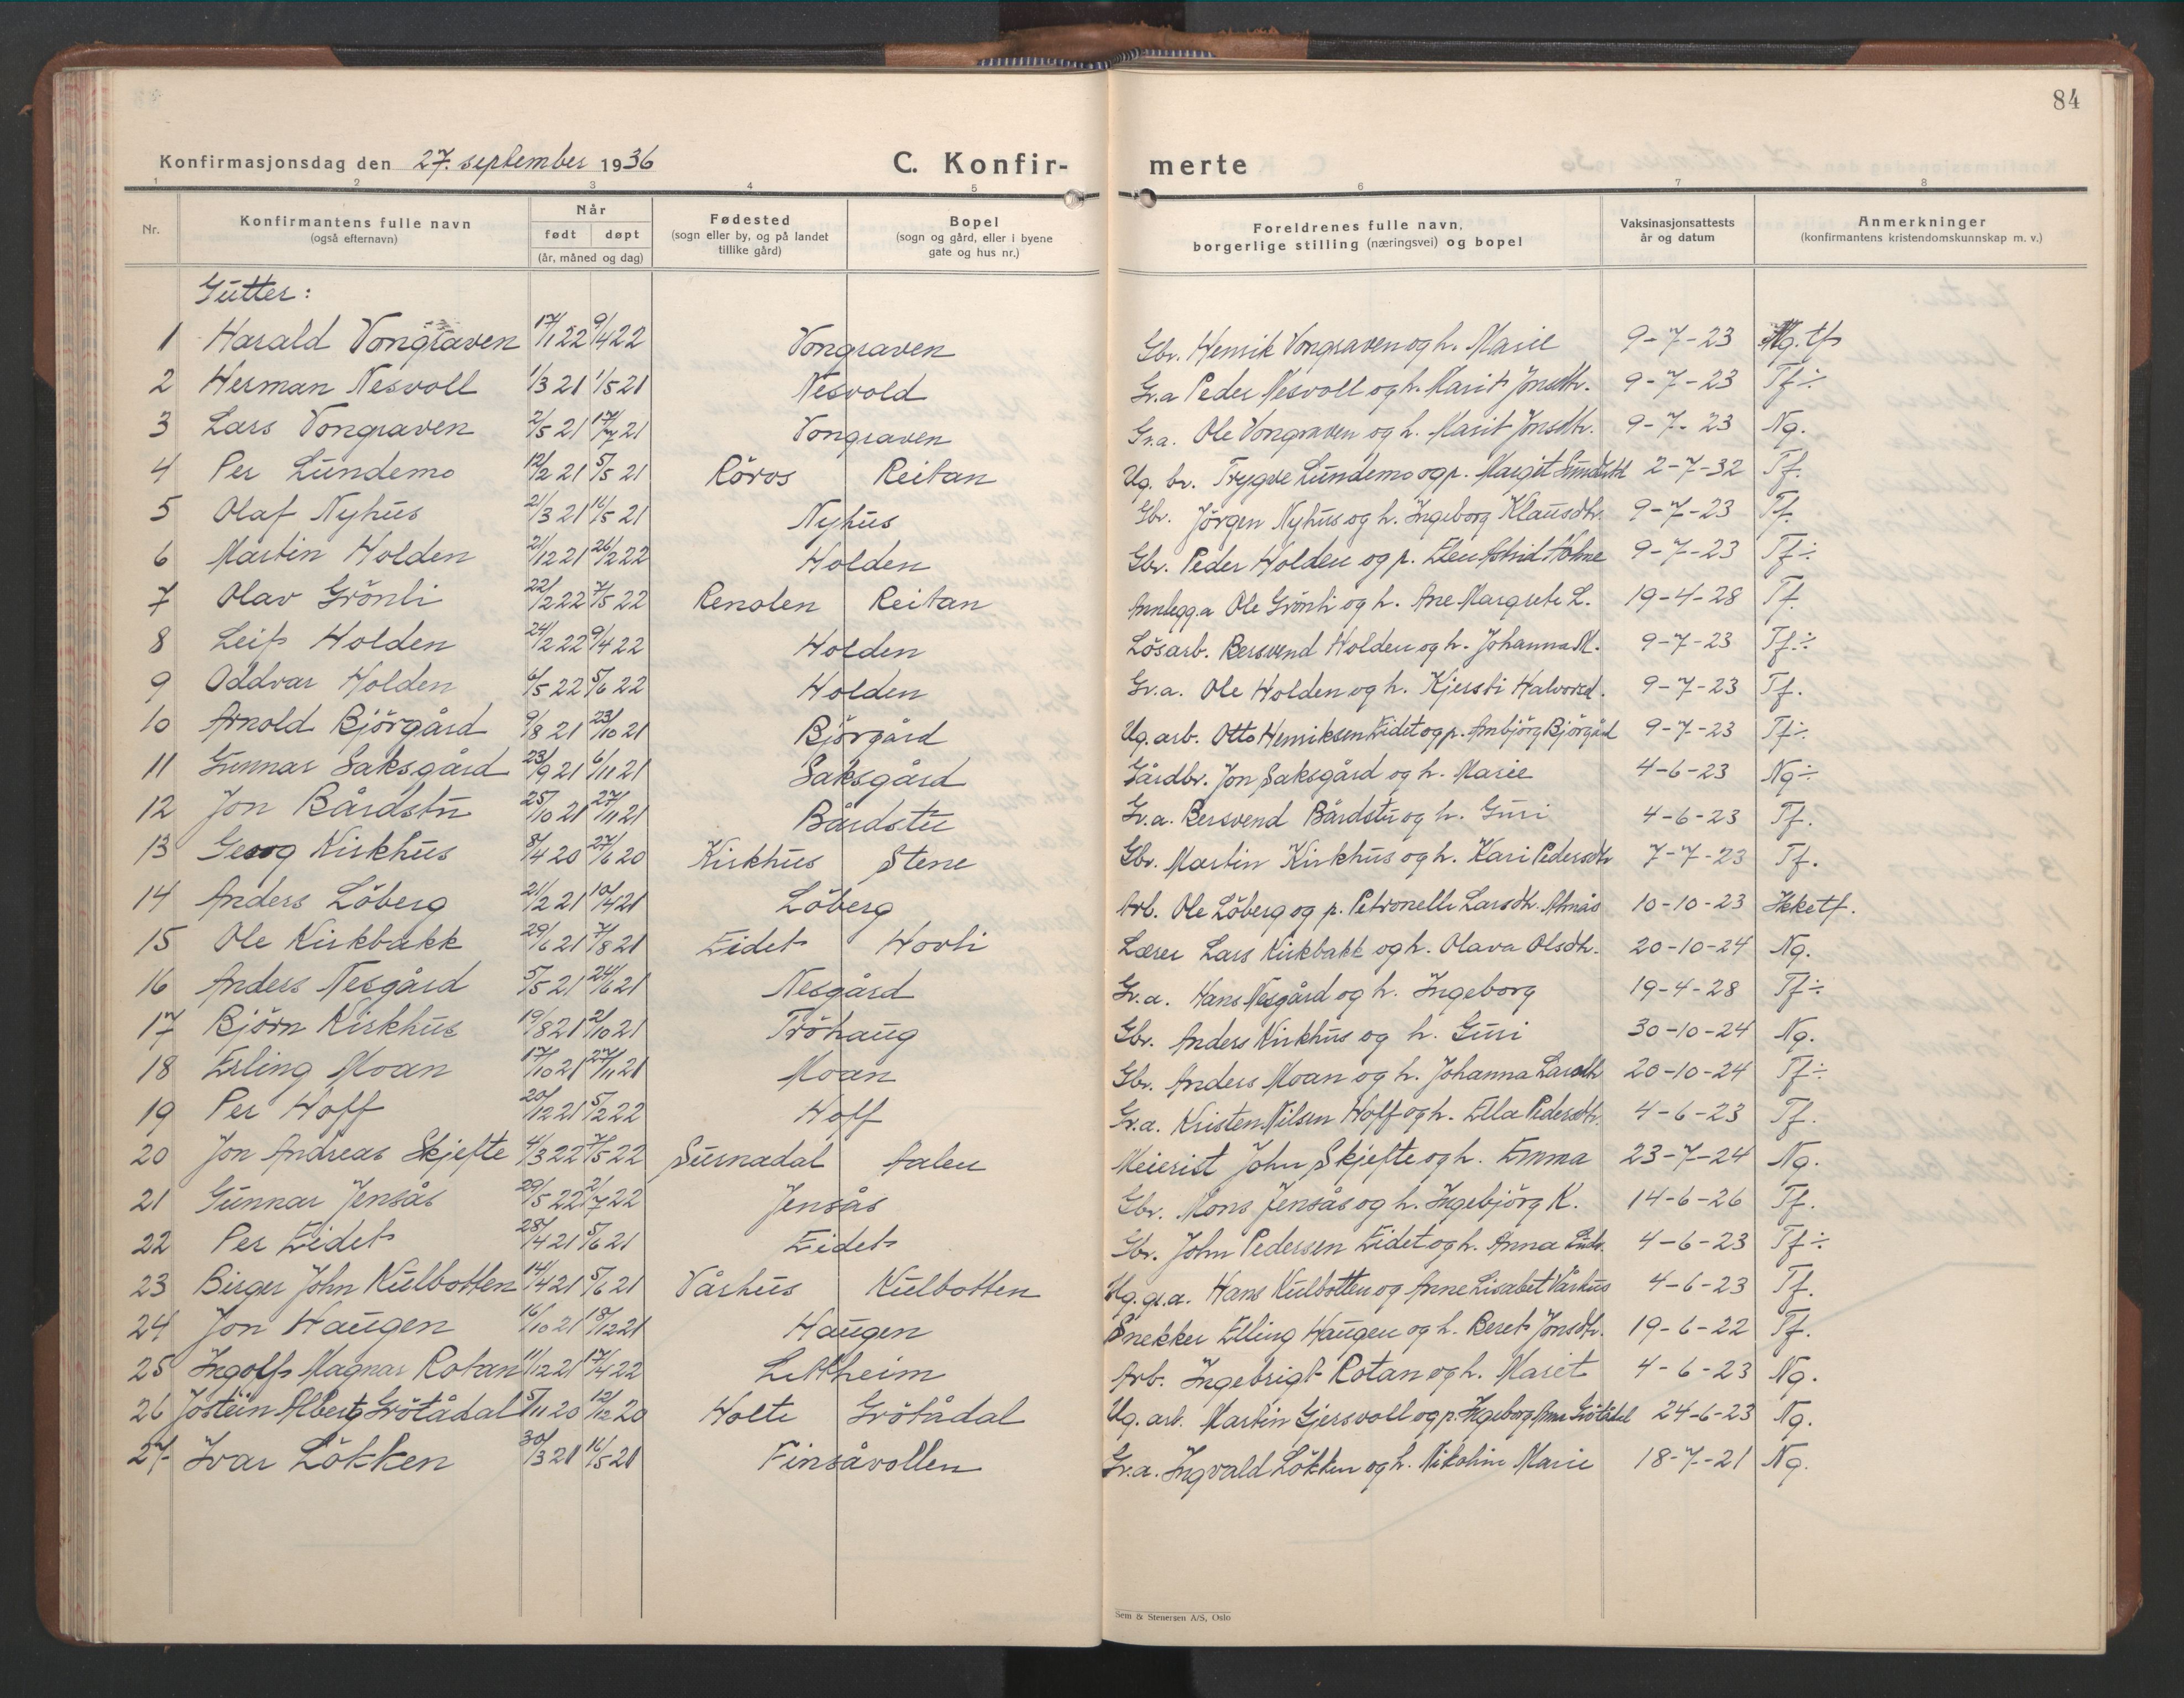 84
Konfirmasjonsdag den 27. september 1936 C. Konfir- merte
1 2 3 4 5 6 7 8
Nr. Konfirmantens fulle navn (også efternavn) Når født døpt (år, måned og dag) Fødested (sogn eller by, og på landet tillike gård) Bopel (sogn og gård, eller i byene gate og hus nr.) Foreldrenes fulle navn, borgerlige stilling (næringsvei) og bopel Vaksinasjonsattests år og datum Anmerkninger (konfirmantens kristendomskunnskap m. v.)
Gutter:
1 Harald Vongraven 17/1 22 9/4 22 Vongraven Gbr. Henrik Vongraven og h. Marie 9-7-23 Mg. tf
2 Herman Nesvoll 1/3 21 1/5 21 Nesvold Gr.a Peder Nesvoll og h. Marit Jonsdtr. 9-7-23 Tf÷
3 Lars Vongraven 2/5 21 17/7 21 Vongraven Gr.a. Ole Vongraven og h. Marit Jonsdtr. 9-7-23 Ng.
4 Per Lundemo 12/2 21 5/5 21 Röros Reitan Ug. br. Trygve Lundemo og p. Margit 2-7-32 Tf.
5 Olaf Nyhus 21/3 21 16/5 21 Nyhus Gbr. Jörgen Nyhus og h. Ingeborg Klausdtr. 9-7-23 Tf.
6 Martin Holden 21/12 21 26/2 22 Holden Gbr. Peder Holden og p. Elen Astrid 9-7-23 Tf÷
7 Olav Grönli 22/2 22 7/5 22 Renolen Reitan Annlegg.a Ole Grönli og h. Ane Margrete L. 19-4-28 Tf.
8 Leif Holden 24/2 22 9/4 22 Holden Lösarb. Bersvend Holden og h. Johanna M. 9-7-23 Tf.÷
9 Oddvar Holden 6/5 22 5/6 22 Holden Gr.a. Ole Holden og h. Kjersti Halvorsd. 9-7-23 Tf.
10 Arnold Björgård 9/8 21 23/10 21 Björgård Ug. arb. Otto Henriksen Eidet og p. Anbjörg Björgård 9-7-23 Tf÷
11 Gunnar Saksgård 23/9 21 6/11 21 Saksgård Gårdbr. Jon Saksgård og h. Marie 4-6-23 Ng÷
12 Jon Bårdstu 25/10 21 27/11 21 Bårdstu Gr.a. Bersvend Bårdstu og h. Guri 4-6-23 Tf.
13 Georg Kirkhus 8/4 20 27/6 20 Kirkhus Stene Gbr. Martin Kirkhus og h. Kari Pedersdtr 7-7-23 Tf.
14 Anders Löberg 21/2 21 10/4 21 Löberg Arb. Ole Löberg og p. Petronelle Larsdtr. Almås 10-10-23 Ikke tf.
15 Ole Kirkbakk 29/6 21 7/8 21 Eidet Hovli Lærer Lars Kirkbakk og h. Olava Olsdtr. 20-10-24 Ng.
16 Anders Nesgård 5/5 21 24/6 21 Nesgård Gr.a. Hans Nesgård og h. Ingeborg 19-4-28 Tf÷
17 Björn Kirkhus 19/8 21 2/10 21 Tröhaug Gbr. Anders Kirkhus og h. Guri 30-10-24 Ng.
18 Erling Moan 17/10 21 27/11 21 Moan Gbr. Anders Moan og h. Johanna Larsdtr 20-10-24 Tf÷
19 Per Hoff 20/12 21 5/2 22 Hoff Gr.a. Kristen Nilsen Hoff og h. Ella Pedersdtr. 4-6-23 Tf.
20 Jon Andreas Skjefte 4/3 22 7/5 22 Surnadal Aalen Meierist John Skjefte og h. Emma 23-7-24 Ng.
21 Gunnar Jensås 29/5 22 2/7 22 Jensås Gbr. Mons Jensås og h. Ingebjörg K. 14-6-26 Tf.
22 Per Eidet 28/4 21 5/6 21 Eidet Gbr. John Pedersen Eidet og h. Anna 4-6-23 Tf÷
23 Birger John Kulbotten 14/4 21 5/6 21 Vårhus Kulbotten Ug. gr.a. Hans Kulbotten og Anne Lisabet Vårhus 4-6-23 Tf.
24 Jon Haugen 16/10 21 18/12 21 Haugen Snekker Elling Haugen og h. Beret Jonsdtr. 19-6-22 Tf.
25 Ingolf Magnar Rotan 11/12 21 17/4 22 Lettheim Arb. Ingebrigt Rotan og h. Marit 4-6-23 Ng.
26 Jostein Albert Grötådal 5/11 20 12/12 20 Holte Grötådal Ug. arb. Martin Gjersvoll og p. Ingeborg Anna Grötådal 24-6-23 Ng.
27 Ivar Lökken 30/3 21 16/5 21 Finsåvollen Gr.a. Ingvald Lökken og h. Nikoline Marie 18-7-21 Ng.
Sem & Stenersen A/S, Oslo